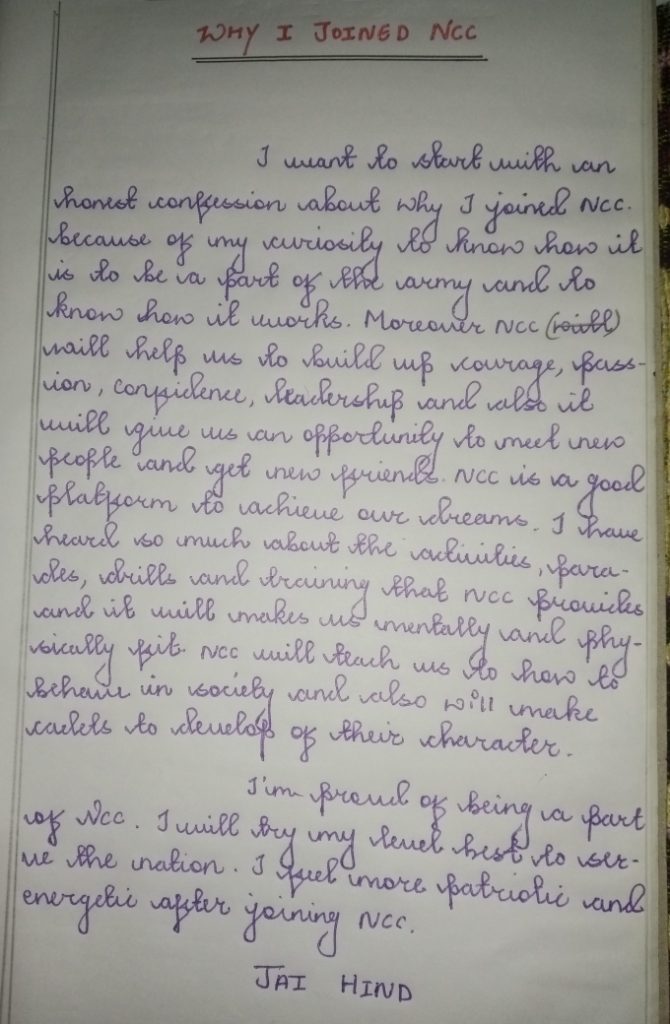 WHY I JOINED NCC
I want to start with an
honest confession about why I joined NCC.
because of my curiosity to know how it
is to be a part of the army and to
know how it works. Moreover NCC (will)
will help us to build up courage, pass-
ion, confidence, leadership and also it
will give us an opportunity to meet new
people and get new friends. NCC is a good
platform to achieve our dreams. I have
heard so much about the activities, para-
des, drills and training that NCC provides
and it will makes us mentally and phy-
sically fit. NCC will teach us to how to
behave in society and also will make
cadets to develop of their character.
I'm proud of being a part
of NCC. I will try my level best to ser-
ve the nation. I feel more patriotic and
energetic after joining NCC.
JAI HIND